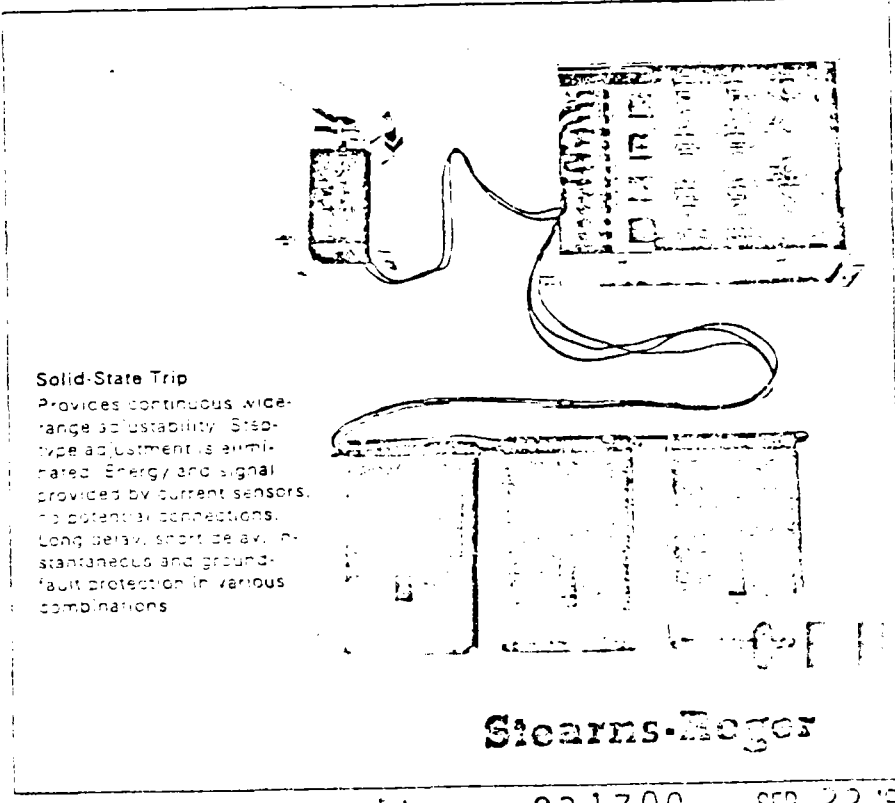 Solid-State Trip
Provides continuous wide-
range adjustability. Step-
type adjustment is elimi-
nated. Energy and signal
provided by current sensors,
no potential connections.
Long delay, short delay, in-
stantaneous and ground-
fault protection in various
combinations
Stearns-Roger
SEP 22